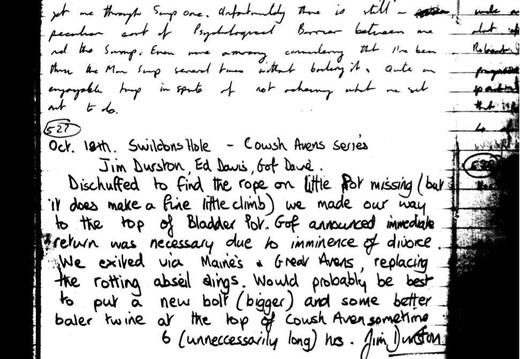 get me through Sump one. Unfortunately there is still a
peculiar sort of Psychological Barrier between me
and the Sump. Even more annoying considering that I've been
thru the Main Sump several times without bottling it. Quite an
enjoyable trip in spite of not achieving what we set
out to do.
527
Oct. 18th. Swildons Hole - Cowsh Avens series
Jim Durston, Ed Davis, Gof Dave.
Dischuffed to find the rope on little Pot missing (but
it does make a fine little climb) we made our way
to the top of Bladder Pot. Gof announced immediate
return was necessary due to imminence of divorce.
We exited via Maine's & Great Avens, replacing
the rotting abseil slings. Would probably be best
to put a new bolt (bigger) and some better
baler twine at the top of Cowsh Aven sometime
6 (unneccessarily long) hrs. Jim Durston